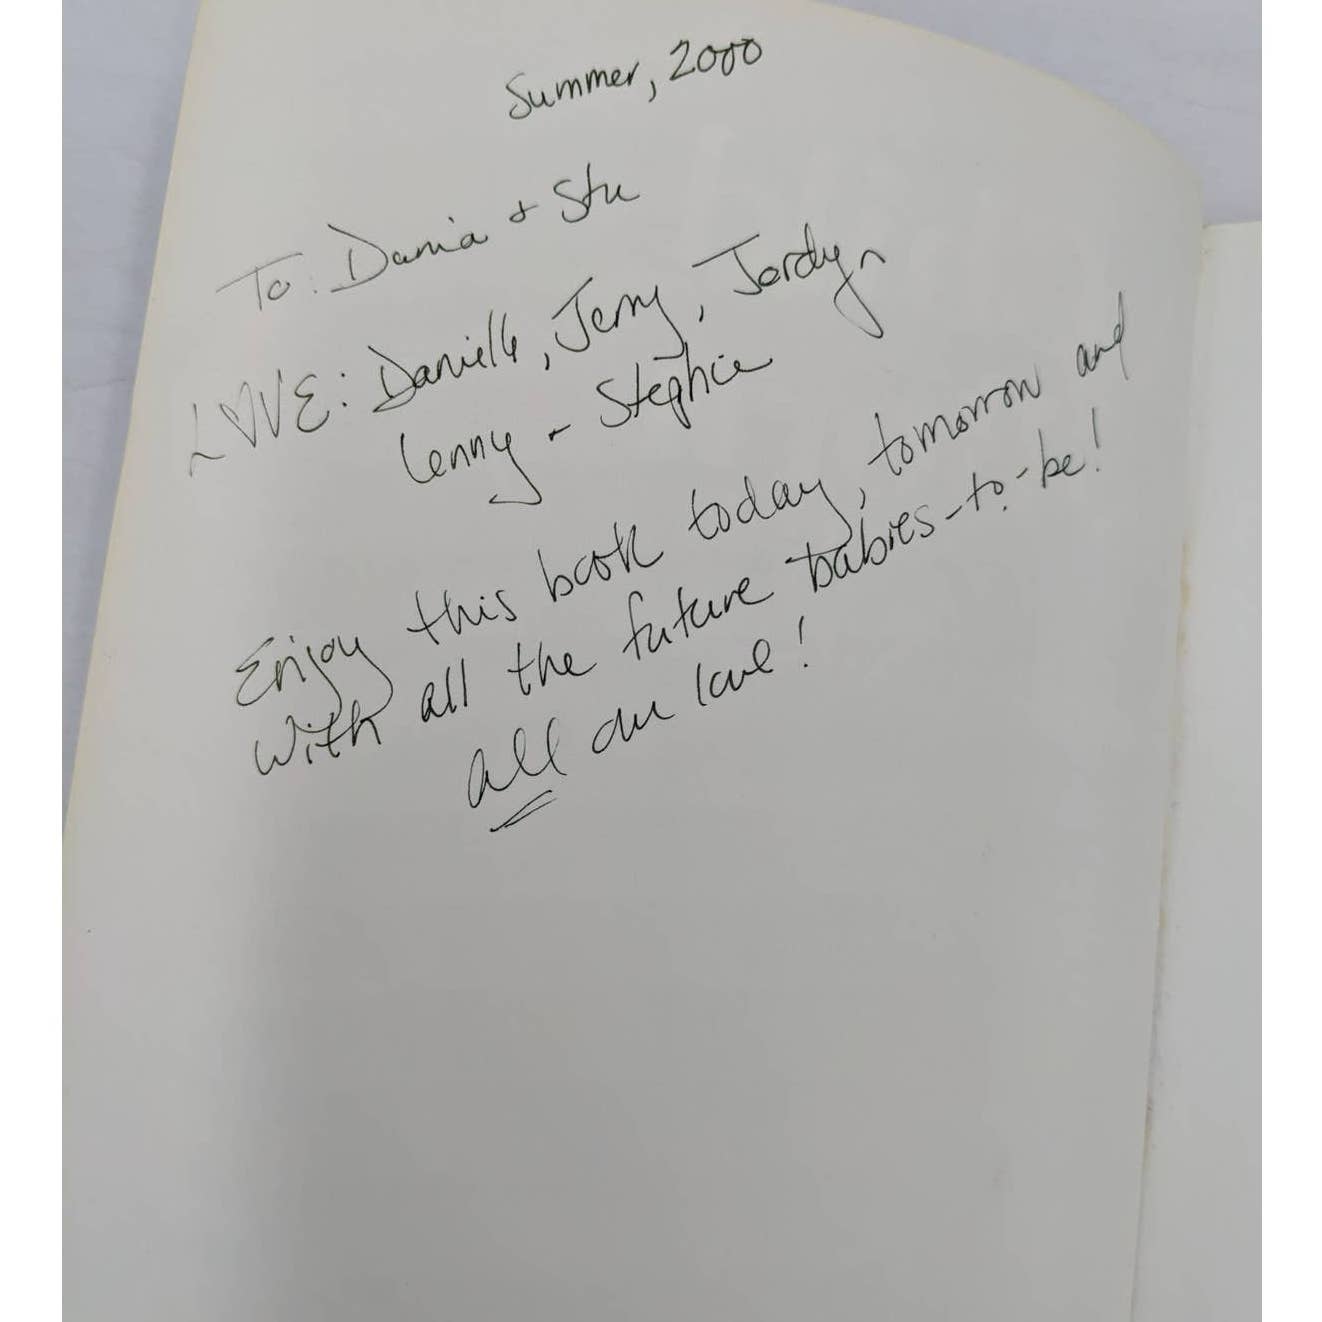 Summer, 2000
To: Dania + Stu
L♡VE: Danielle, Jerry, Jordyn
Lenny + Stephie
Enjoy this book today, tomorrow and
with all the future babies-to-be!
all our love!